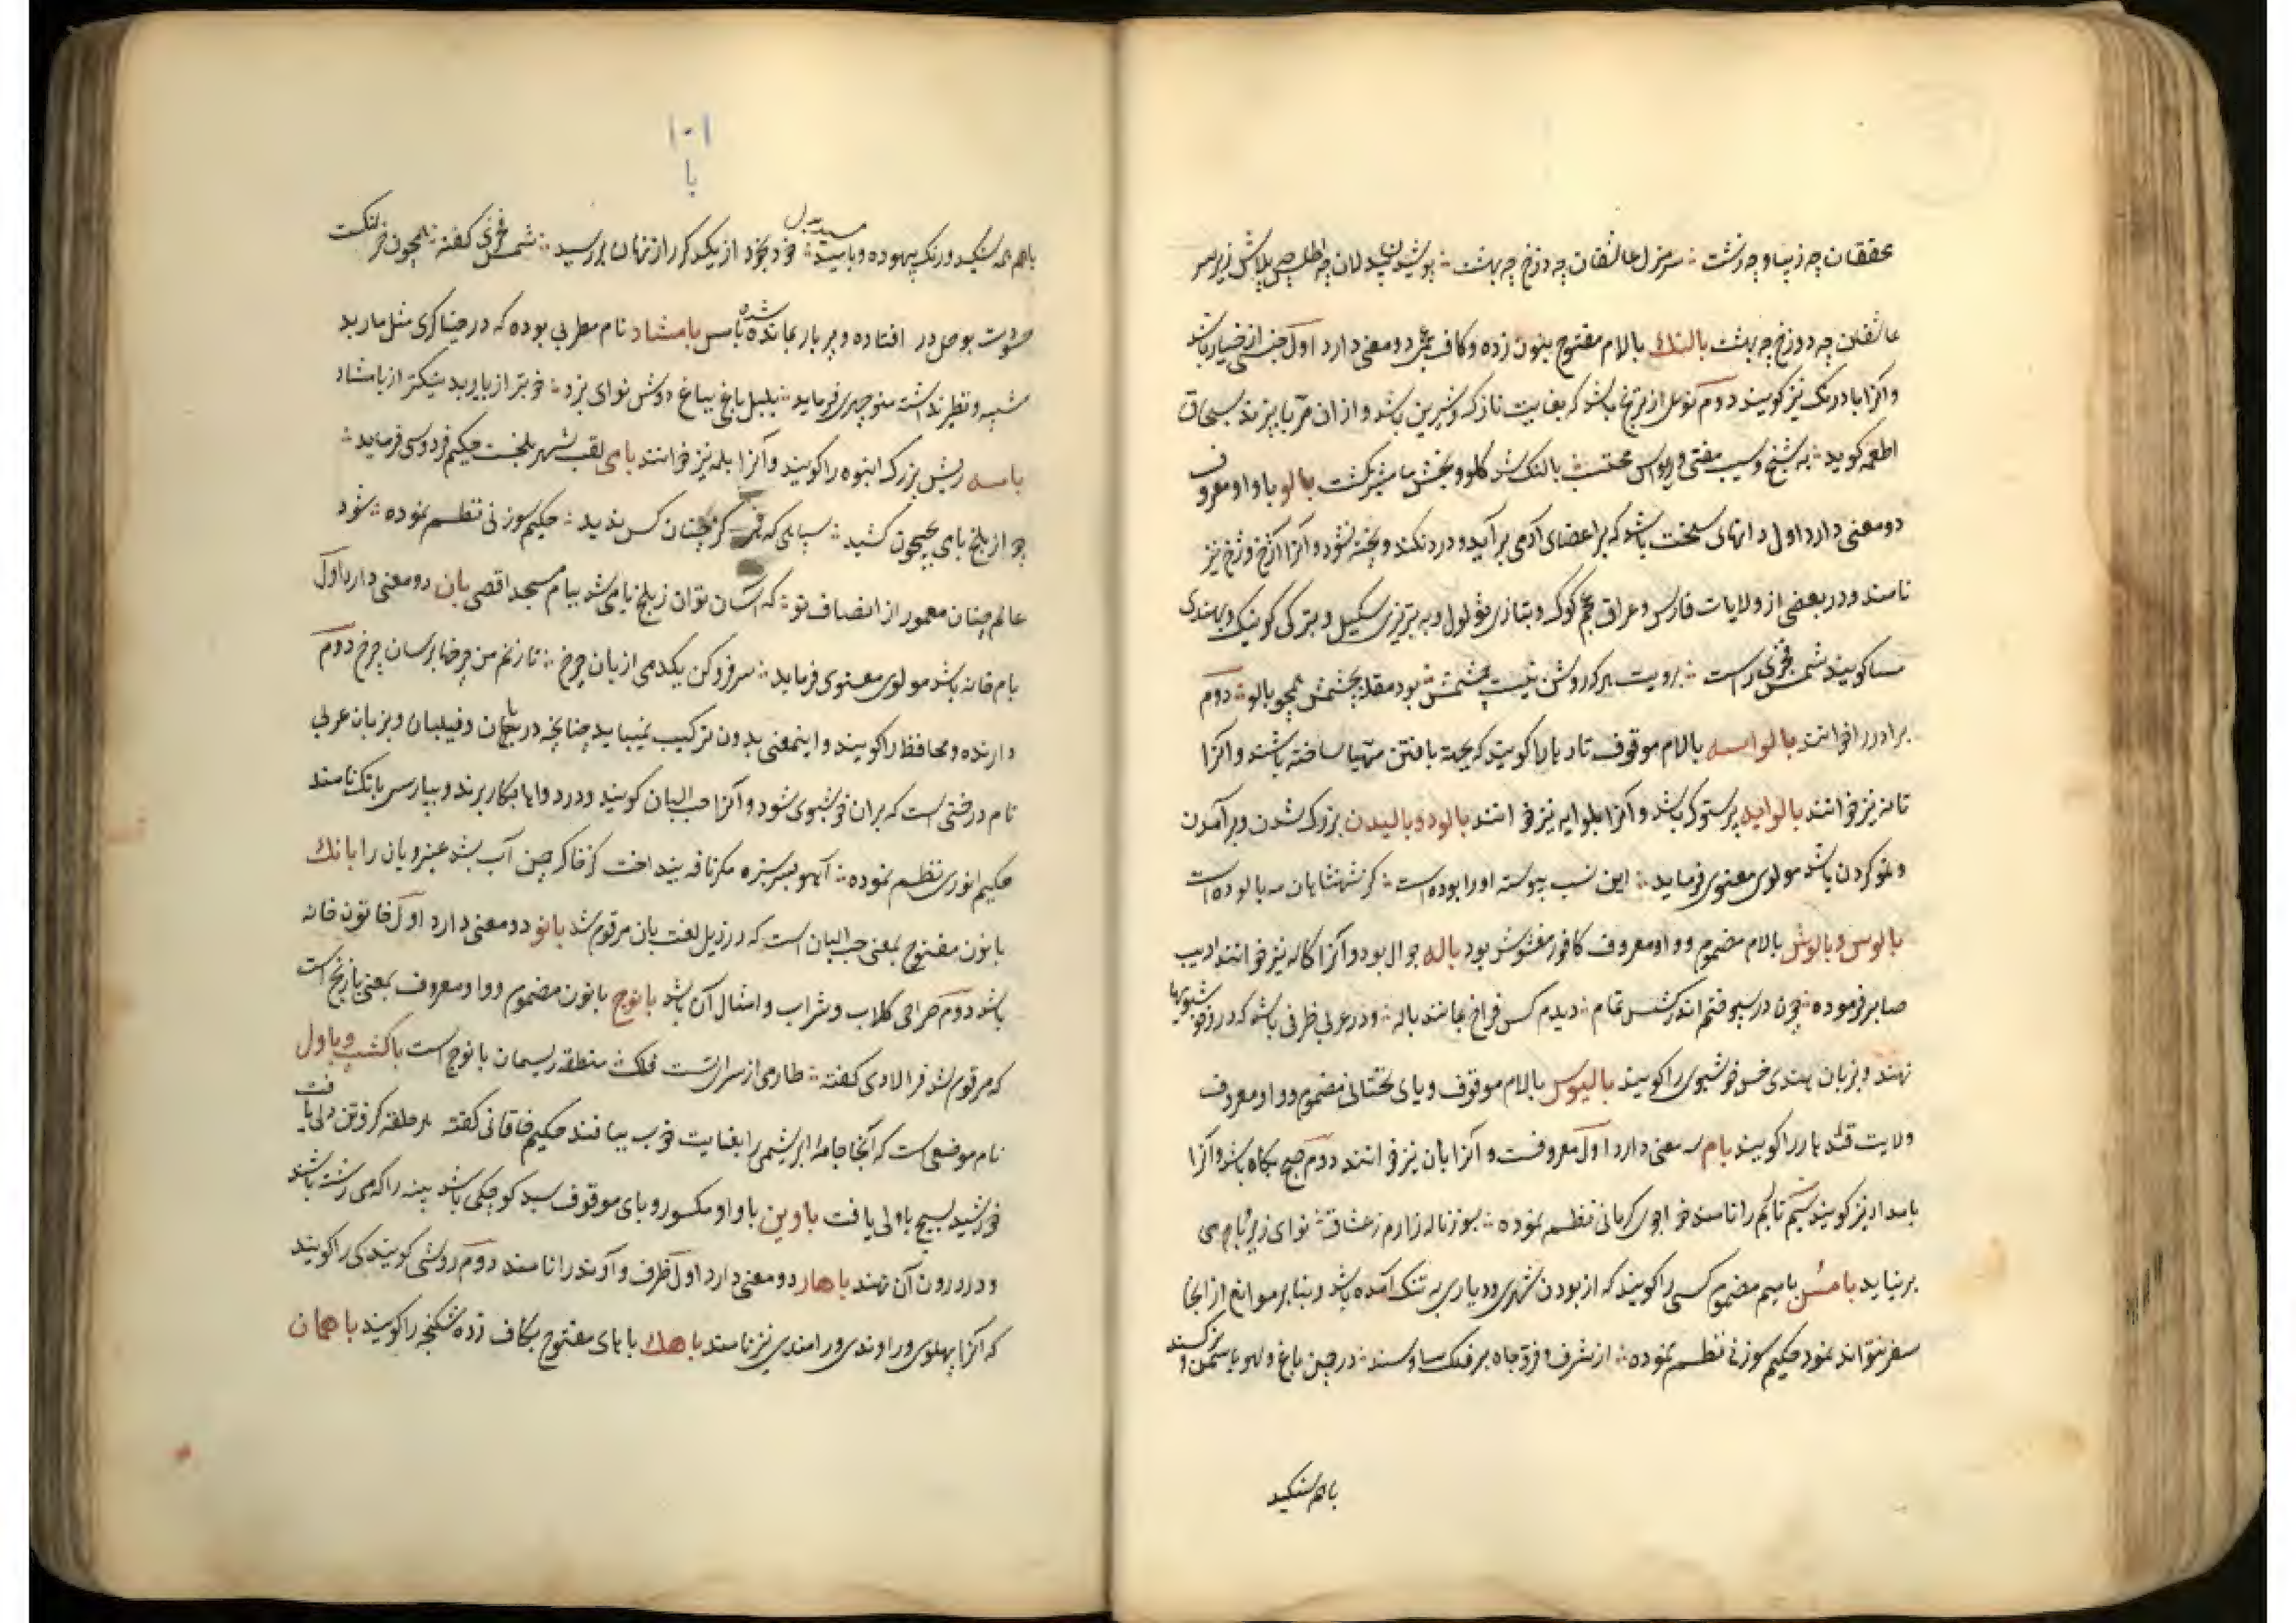 محققان چه زیبا و چه زشت ؞ سرمنزل عاشقان چه دوزخ چه بهشت ؞ پوشیدن بیدلان چه اطلس چه پلاس زیر سر
عاشقان چه دوزخ چه بهشت بالنك بالام مفتوح بنون زده و کاف عجمی دو معنی دارد اول جنسی از خیار باشد
و آنرا بادرنک نیز کویند دوم نوعی از ترنج باشد که بغایت نازک و شیرین باشد و از ان مربا پزند بسحاق
اطعمه کوید ؞ به شیخ وسیب مفتی و محتسب ؞ بالنک شد کلو و بخش کشت بالو با واو معروف
دو معنی دارد اول دانهای سخت باشد که بر اعضای آدمی برآید و درد نکند و پخته نشود و آنرا آزخ و ژخ نیز
نامند و در بعضی از ولایات فارس و عراق عجم کوک و بتازی ثولول و به تبریزی سکیل و بترکی کوینک و بهندی
مسا کویند شمس فخری راست ؞ برویت هرکه روشن نیست چشمش ؞ بود مقله بچشمش همچو بالو ؞ دوم
برادر را خوانند بالواسه بالام موقوف تار بارا کویند که بجهة بافتن مهیا ساخته باشند و آنرا
تانه نیز خوانند بالوایه پرستوک باشد و آنرا بلوایه نیز خوانند بالود و بالیدن بزرک شدن و برآمدن
و نمو کردن باشد مولوی معنوی فرماید ؞ این نسب پیوسته او را بوده است ؞ کز شهنشاهان مه بالوده است
بالوس و بالوش بالام مضموم و واو معروف کافور مغشوش بود باله جوال بود و آنرا کاله نیز خوانند ادیب
صابر فرموده ؞ چون در سپوختم اندر کسش تمام ؞ دیدم کس فراخ بمانند باله ؞ و در عربی ظرفی باشد که در و خوشبویها
نهند و بزبان هندی خس خوشبوی را کویند بالیوس بالام موقوف و یای تحتانی مضموم و واو معروف
ولایت قندهار را کویند بام سه معنی دارد اول معروفست و آنرا بان نیز خوانند دوم صبح پکاه باشد و آنرا
بامداد نیز کویند سیم تار بم را نامند خواجوی کرمانی نظم نموده ؞ بسوز ناله زارم ز عشاق ؞ نوای زیر و بام می
برنیاید بامس بامیم مضموم کسی را کویند که از بودن شهری و دیاری به تنک آمده باشد و بنا بر موانع از انجا
سفر نتواند نمود حکیم سوزنی نظم نموده ؞ از شرف و فرّ و جاه بر فلک ساوسند ؞ در چمن باغ و لهو با سمن و نرکسند
باهم نشکید
۱۰۱
با
باهم نشکید و رنک بیهوده و بامسید ؞ خود بخود از یکدکر راز نهان بررسید ؞ شمس فخری کفته ؞ همچون خر لنکست
حسودت بوحل در افتاده و پر بار بمانده شده بامس بامشاد نام مطربی بوده که در خنیاکری مثل باربد
شبیه و نظیر نداشته منوچهری فرماید ؞ بلبل باغی بباغ دوش نوای بزد ؞ خوبتر از باربد نیکتر از بامشاد
بامه ریش بزرک انبوه را کویند و آنرا بلمه نیز خوانند بامی لقب شهر بلخست حکیم فردوسی فرماید ؞
چو از بلخ بامی بجیحون کشید ؞ سپاهی که هرکز چنان کس ندید ؞ حکیم سوزنی نظم نموده ؞ شود
عالم چنان معمور از انصاف تو ؞ که آسان توان ز بلخ بامی شد ببام مسجد اقصی بان دو معنی دارد اول
بام خانه باشد مولوی معنوی فرماید ؞ سر فرو کن یکدمی از بان چرخ ؞ تا زنم من چرخها بر سان چرخ دوم
دارنده و محافظ را کویند و اینمعنی بدون ترکیب نمیباید چنانچه در باغبان و فیلبان و بزبان عربی
نام درختی است که بران خوشبوی شود و آنرا حب البان کویند و در دواها بکار برند و بپارسی بانک نامند
حکیم انوری نظم نموده ؞ آهو بسر سبزه مکر نافه بینداخت کز خاک چمن آب بشد عنبر و بان را بانك
بانون مفتوح بمعنی حب البان است که در ذیل لغت بان مرقوم شد بانو دو معنی دارد اول خاتون خانه
باشد دوم صراحی کلاب و شراب و امثال آن باشد بانوج بانون مضموم و واو معروف بمعنی بازنیج است
که مرقوم شد فرالاوی کفته ؞ طارمی از سرای تست فلک ؞ منطقه ریسمان بانوج است باکشب و باول
نام موضعی است که آنجا جامه ابریشمی را بغایت خوب ببافند حکیم خاقانی کفته هر حلقه کز وتن دلی بافت
خورشید نسیج باولی یافت باوین با واو مکسور و یای موقوف سبد کوچکی باشد پنبه را که می رشته باشد
و در درون آن نهند باهار دو معنی دارد اول ظرف و آوند را نامند دوم روشی کویندکی را کویند
که آنرا پهلوی و راوندی و رامندی نیز نامند باهك باهای مفتوح بکاف زده شکنجه را کویند باهمان